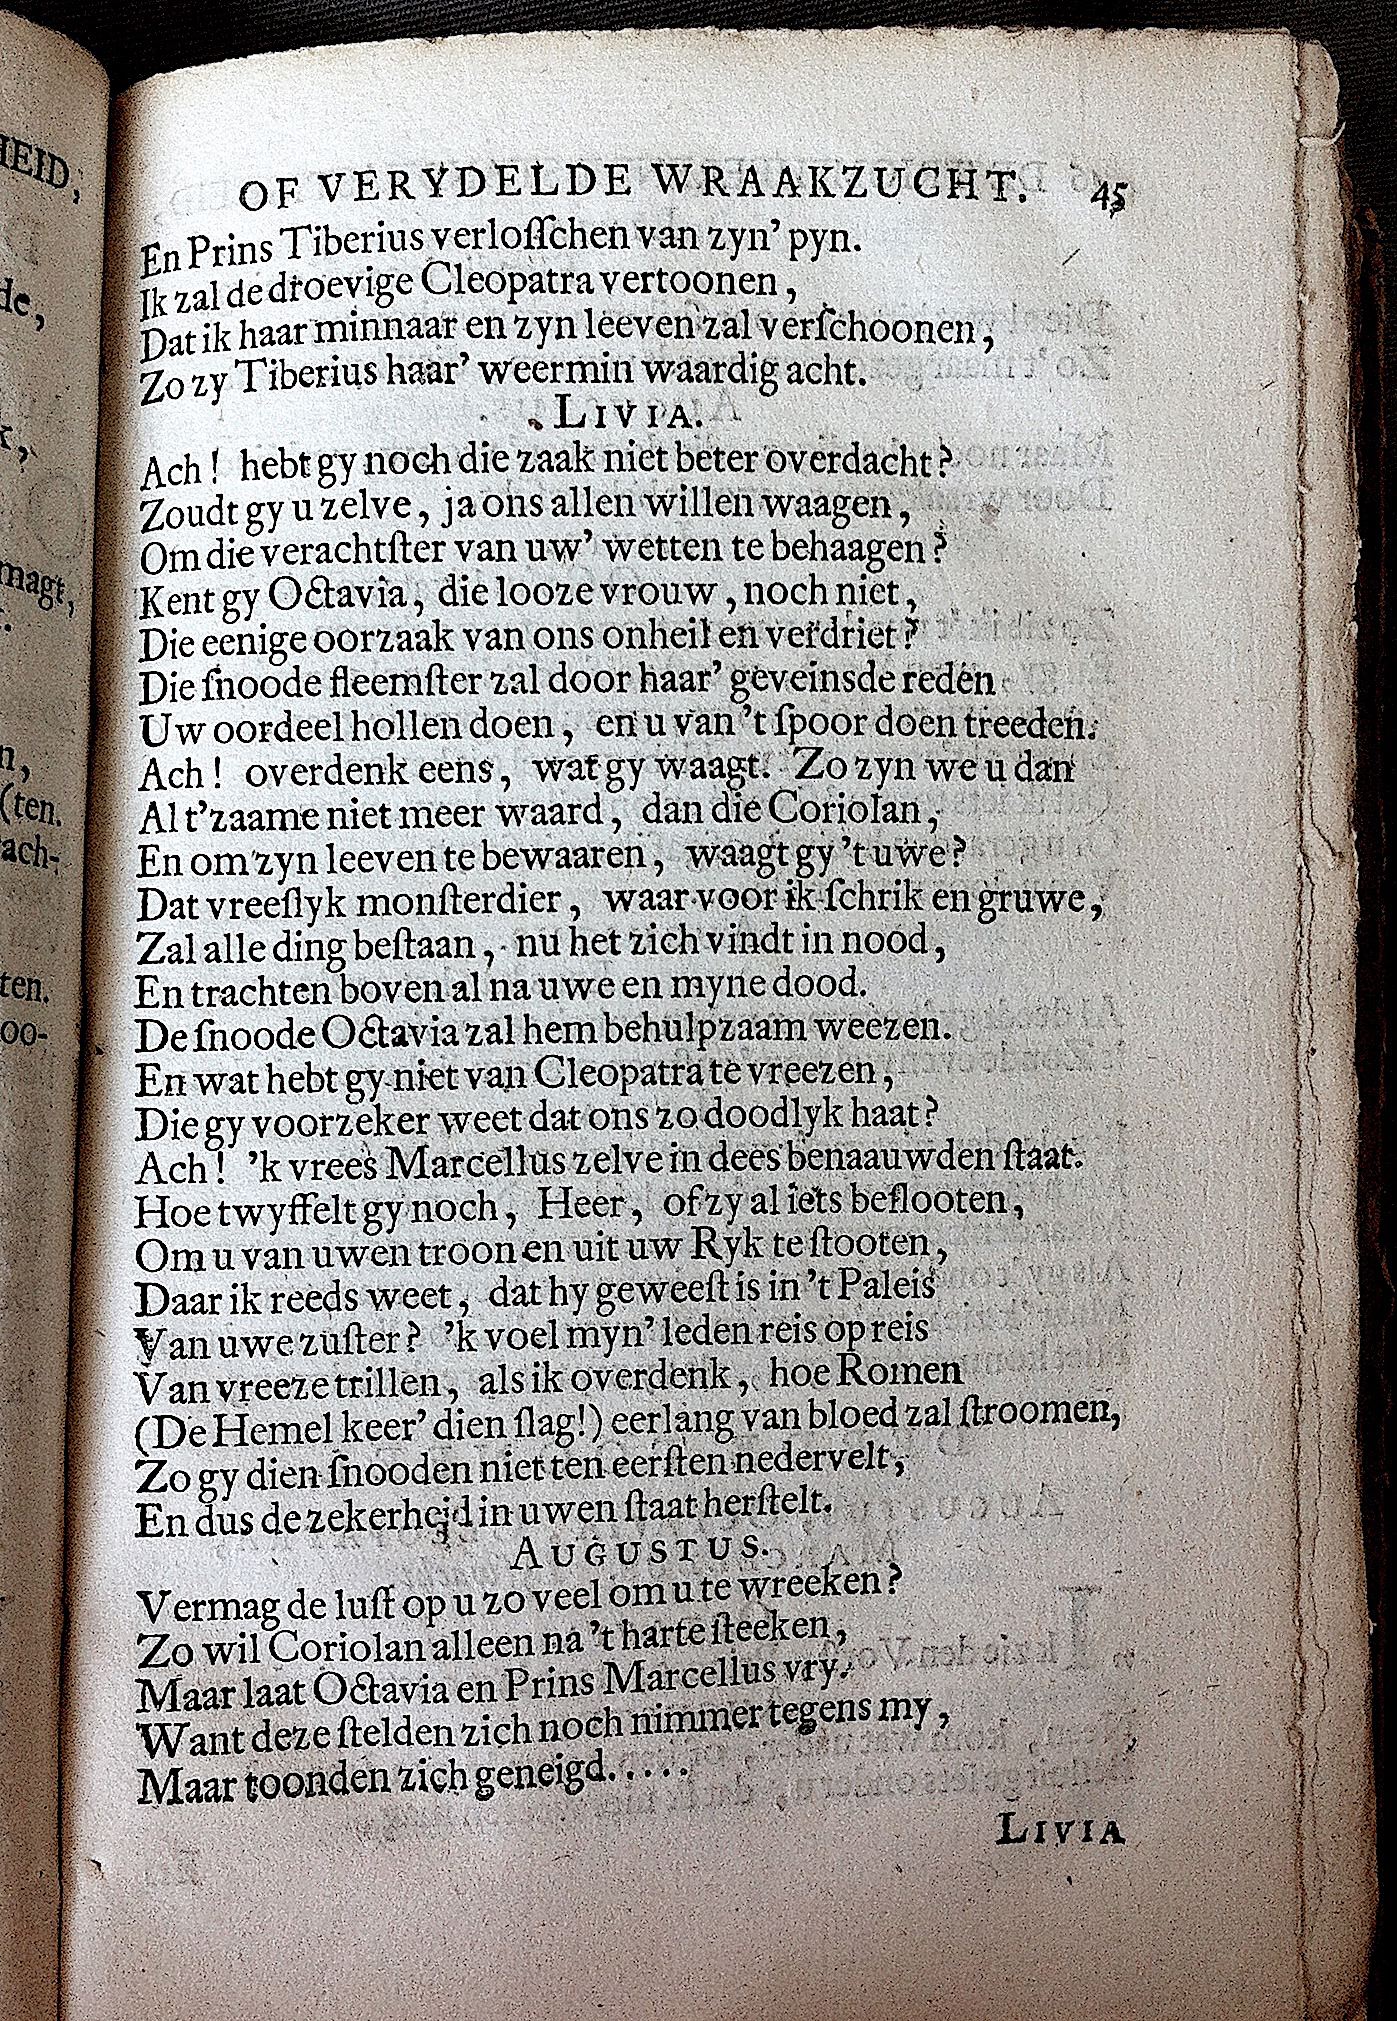 OF VERYDELDE WRAAKZUCHT. 45
En Prins Tiberius verloſſchen van zyn' pyn.
Ik zal de droevige Cleopatra vertoonen,
Dat ik haar minnaar en zyn leeven zal verſchoonen,
Zo zy Tiberius haar' weermin waardig acht.
LIVIA.
Ach! hebt gy noch die zaak niet beter overdacht?
Zoudt gy u zelve, ja ons allen willen waagen,
Om die verachtſter van uw' wetten te behaagen?
Kent gy Octavia, die looze vrouw, noch niet,
Die eenige oorzaak van ons onheil en verdriet?
Die ſnoode fleemſter zal door haar' geveinsde reden
Uw oordeel hollen doen, en u van 't ſpoor doen treeden.
Ach! overdenk eens, wat gy waagt. Zo zyn we u dan
Al t'zaame niet meer waard, dan die Coriolan,
En om zyn leeven te bewaaren, waagt gy 't uwe?
Dat vreeſlyk monſterdier, waar voor ik ſchrik en gruwe,
Zal alle ding beſtaan, nu het zich vindt in nood,
En trachten boven al na uwe en myne dood.
De ſnoode Octavia zal hem behulpzaam weezen.
En wat hebt gy niet van Cleopatra te vreezen,
Die gy voorzeker weet dat ons zo doodlyk haat?
Ach! 'k vrees Marcellus zelve in dees benaauwden ſtaat.
Hoe twyffelt gy noch, Heer, of zy al iets beſlooten,
Om u van uwen troon en uit uw Ryk te ſtooten,
Daar ik reeds weet, dat hy geweeſt is in 't Paleis
Van uwe zuſter? 'k voel myn' leden reis op reis
Van vreeze trillen, als ik overdenk, hoe Romen
(De Hemel keer' dien ſlag!) eerlang van bloed zal ſtroomen,
Zo gy dien ſnooden niet ten eerſten nedervelt,
En dus de zekerheid in uwen ſtaat herſtelt.
AUGUSTUS.
Vermag de luſt op u zo veel om u te wreeken?
Zo wil Coriolan alleen na 't harte ſteeken,
Maar laat Octavia en Prins Marcellus vry.
Want deze ſtelden zich noch nimmer tegens my,
Maar toonden zich geneigd.....
LIVIA